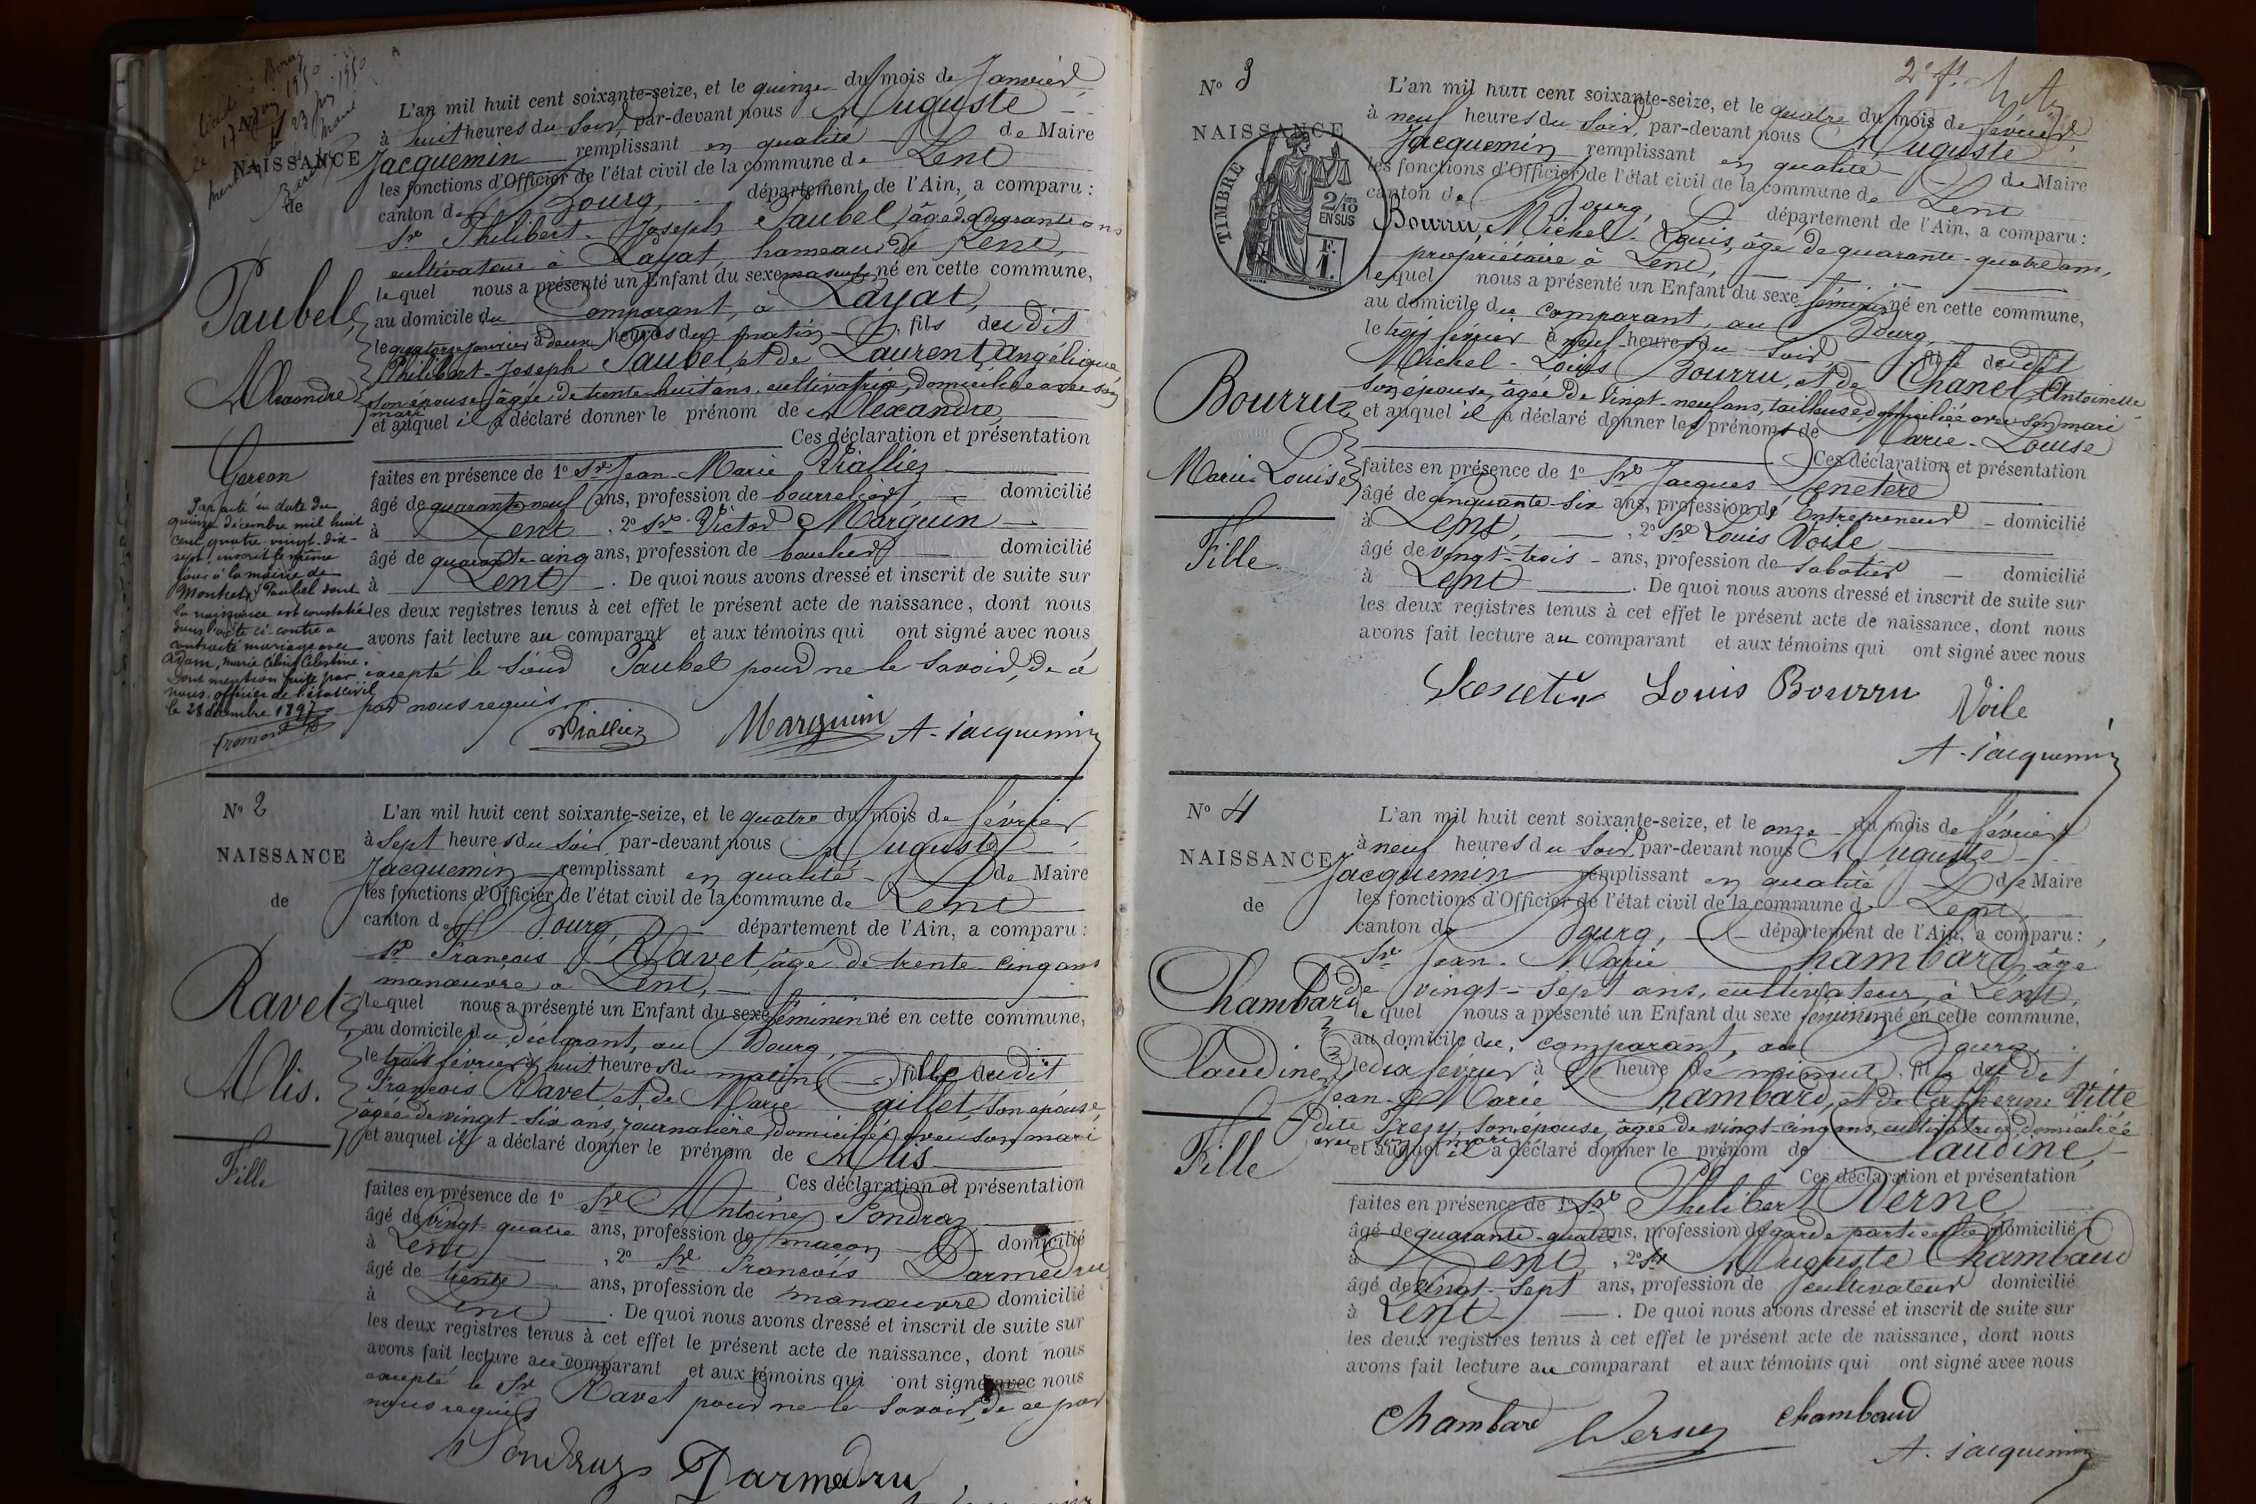 NAISSANCE
de
Paubel
Alexandre
Garçon
Par acte en date du
quinze décembre mil huit
cent quatre-vingt-dix-
sept, inscrit le même
jour à la mairie de
Paubel dont
la naissance est constatée
dans l'acte ci-contre a
contracté mariage avec
Adam, Marie Céline Célestine.
Dont mention faite par
nous, officier de l'état civil
le 28 décembre 1897
L'an mil huit cent soixante-seize, et le quinze du mois de Janvier
à huit heures du Soir, par-devant nous Auguste
Jacquemin remplissant en qualité de Maire
les fonctions d'Officier de l'état civil de la commune de Lent
canton de Bourg, département de l'Ain, a comparu :
Sr Philibert-Joseph Paubel, âgé de quarante ans
cultivateur à Layat, hameau de Lent,
lequel nous a présenté un Enfant du sexe masculin né en cette commune,
au domicile du Comparant, à Layat,
le quatorze janvier à deux heures du matin, fils dudit
Philibert-Joseph Paubel, et de Laurent Angélique
son épouse, âgée de trente-huit ans, cultivatrice, domiciliée avec son
mari
et auquel il a déclaré donner le prénom de Alexandre
Ces déclaration et présentation
faites en présence de 1° Sr Jean-Marie Vialliez
âgé de quarante-neuf ans, profession de bourrelier, domicilié
à Lent, 2° Sr Victor Marguin
âgé de quarante-cinq ans, profession de boucher domicilié
à Lent. De quoi nous avons dressé et inscrit de suite sur
les deux registres tenus à cet effet le présent acte de naissance, dont nous
avons fait lecture au comparant et aux témoins qui ont signé avec nous
excepté le sieur Paubel pour ne le savoir, de ce
par nous requis
Vialliez Marguin A. Jacquemin
N° 2
NAISSANCE
de
Ravet
Alis.
Fille
L'an mil huit cent soixante-seize, et le quatre du mois de février
à Sept heures du Soir, par-devant nous Auguste
Jacquemin remplissant en qualité de Maire
les fonctions d'Officier de l'état civil de la commune de Lent
canton de Bourg, département de l'Ain, a comparu :
Sr François Ravet, âgé de trente-cinq ans
manœuvre à Lent,
lequel nous a présenté un Enfant du sexe féminin né en cette commune,
au domicile du déclarant, au Bourg,
le trois février à huit heures du matin, fille dudit
François Ravet et de Marie Caillet, son épouse
âgée de vingt-six ans, journalière, domiciliée avec son mari
et auquel il a déclaré donner le prénom de Alis
Ces déclaration et présentation
faites en présence de 1° Sr Antoine Pondraz
âgé de vingt-quatre ans, profession de maçon domicilié
à Lent, 2° Sr François Darmedru
âgé de trente ans, profession de manœuvre domicilié
à Lent. De quoi nous avons dressé et inscrit de suite sur
les deux registres tenus à cet effet le présent acte de naissance, dont nous
avons fait lecture au comparant et aux témoins qui ont signé avec nous
excepté le Sr Ravet pour ne le savoir, de ce par
nous requis
Darmedru
N° 3
NAISSANCE
de
TIMBRE
2/10
EN SUS
Bourru
Marie-Louise
Fille
L'an mil huit cent soixante-seize, et le quatre du mois de février
à neuf heures du Soir, par-devant nous Auguste
Jacquemin remplissant en qualité de Maire
les fonctions d'Officier de l'état civil de la commune de Lent
canton de Bourg, département de l'Ain, a comparu :
Bourru, Michel-Louis, âgé de quarante-quatre ans,
propriétaire à Lent,
lequel nous a présenté un Enfant du sexe féminin né en cette commune,
au domicile du comparant, au Bourg,
le trois février à neuf heures du Soir, fille dudit
Michel-Louis Bourru, et de Chanel Antoinette
son épouse, âgée de vingt-neuf ans, tailleuse, domiciliée avec son mari
et auquel il a déclaré donner les prénoms de Marie-Louise
Ces déclaration et présentation
faites en présence de 1° Sr Jacques Senetère
âgé de cinquante-six ans, profession d'Entrepreneur domicilié
à Lent, 2° Sr Louis Voile
âgé de vingt-trois ans, profession de Sabotier domicilié
à Lent. De quoi nous avons dressé et inscrit de suite sur
les deux registres tenus à cet effet le présent acte de naissance, dont nous
avons fait lecture au comparant et aux témoins qui ont signé avec nous
Louis Bourru Voile
A. Jacquemin
N° 4
NAISSANCE
de
Chambard
Claudine
Fille
L'an mil huit cent soixante-seize, et le onze du mois de février
à neuf heures du Soir, par-devant nous Auguste
Jacquemin remplissant en qualité de Maire
les fonctions d'Officier de l'état civil de la commune de Lent
canton de Bourg, département de l'Ain, a comparu :
Sr Jean-Marie Chambard, âgé
de vingt-sept ans, cultivateur, à Lent,
lequel nous a présenté un Enfant du sexe féminin né en cette commune,
au domicile du comparant, au Bourg,
le dix février à heure de minuit, fille dudit
Jean-Marie Chambard, et de Catherine Vitte
dite son épouse, âgée de vingt-cinq ans, cultivatrice, domiciliée
avec son mari
et auquel il a déclaré donner le prénom de Claudine,
Ces déclaration et présentation
faites en présence de 1° Sr Philibert Verne
âgé de quarante-quatre ans, profession de garde particulier domicilié
à Lent, 2° Sr Auguste Chambaud
âgé de vingt-sept ans, profession de cultivateur domicilié
à Lent. De quoi nous avons dressé et inscrit de suite sur
les deux registres tenus à cet effet le présent acte de naissance, dont nous
avons fait lecture au comparant et aux témoins qui ont signé avec nous
Chambard Verne Chambaud
A. Jacquemin